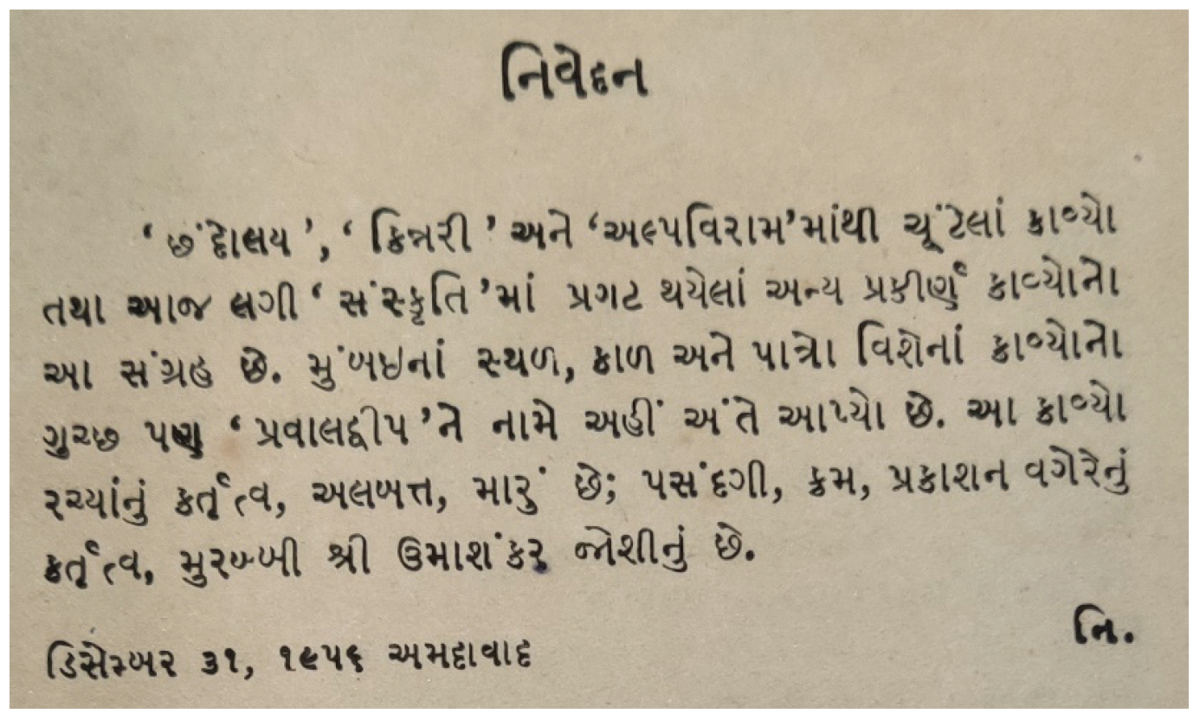 નિવેદન
‘ છંદોલય ’, ‘ કિન્નરી ’ અને ‘અલ્પવિરામ’માંથી ચૂંટેલાં કાવ્યો
તથા આજ લગી ‘ સંસ્કૃતિ ’માં પ્રગટ થયેલાં અન્ય પ્રકીર્ણ કાવ્યોનો
આ સંગ્રહ છે. મુંબઇનાં સ્થળ, કાળ અને પાત્રો વિશેનાં કાવ્યોનો
ગુચ્છ પણ ‘ પ્રવાલદ્વીપ ’ને નામે અહીં અંતે આપ્યો છે. આ કાવ્યો
રચ્યાંનું કર્તૃત્વ, અલબત્ત, મારું છે; પસંદગી, ક્રમ, પ્રકાશન વગેરેનું
કર્તૃત્વ, મુરબ્બી શ્રી ઉમાશંકર જોશીનું છે.
નિ.
ડિસેમ્બર ૩૧, ૧૯૫૬ અમદાવાદ